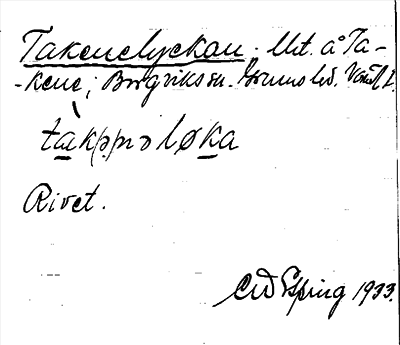 Takenelyckan. Utt. å Ta-
-kene; Borgvik sn. Grums hd. Värml.
tàkə(n)ə løka
Rivet.
Elof Spring 1933.